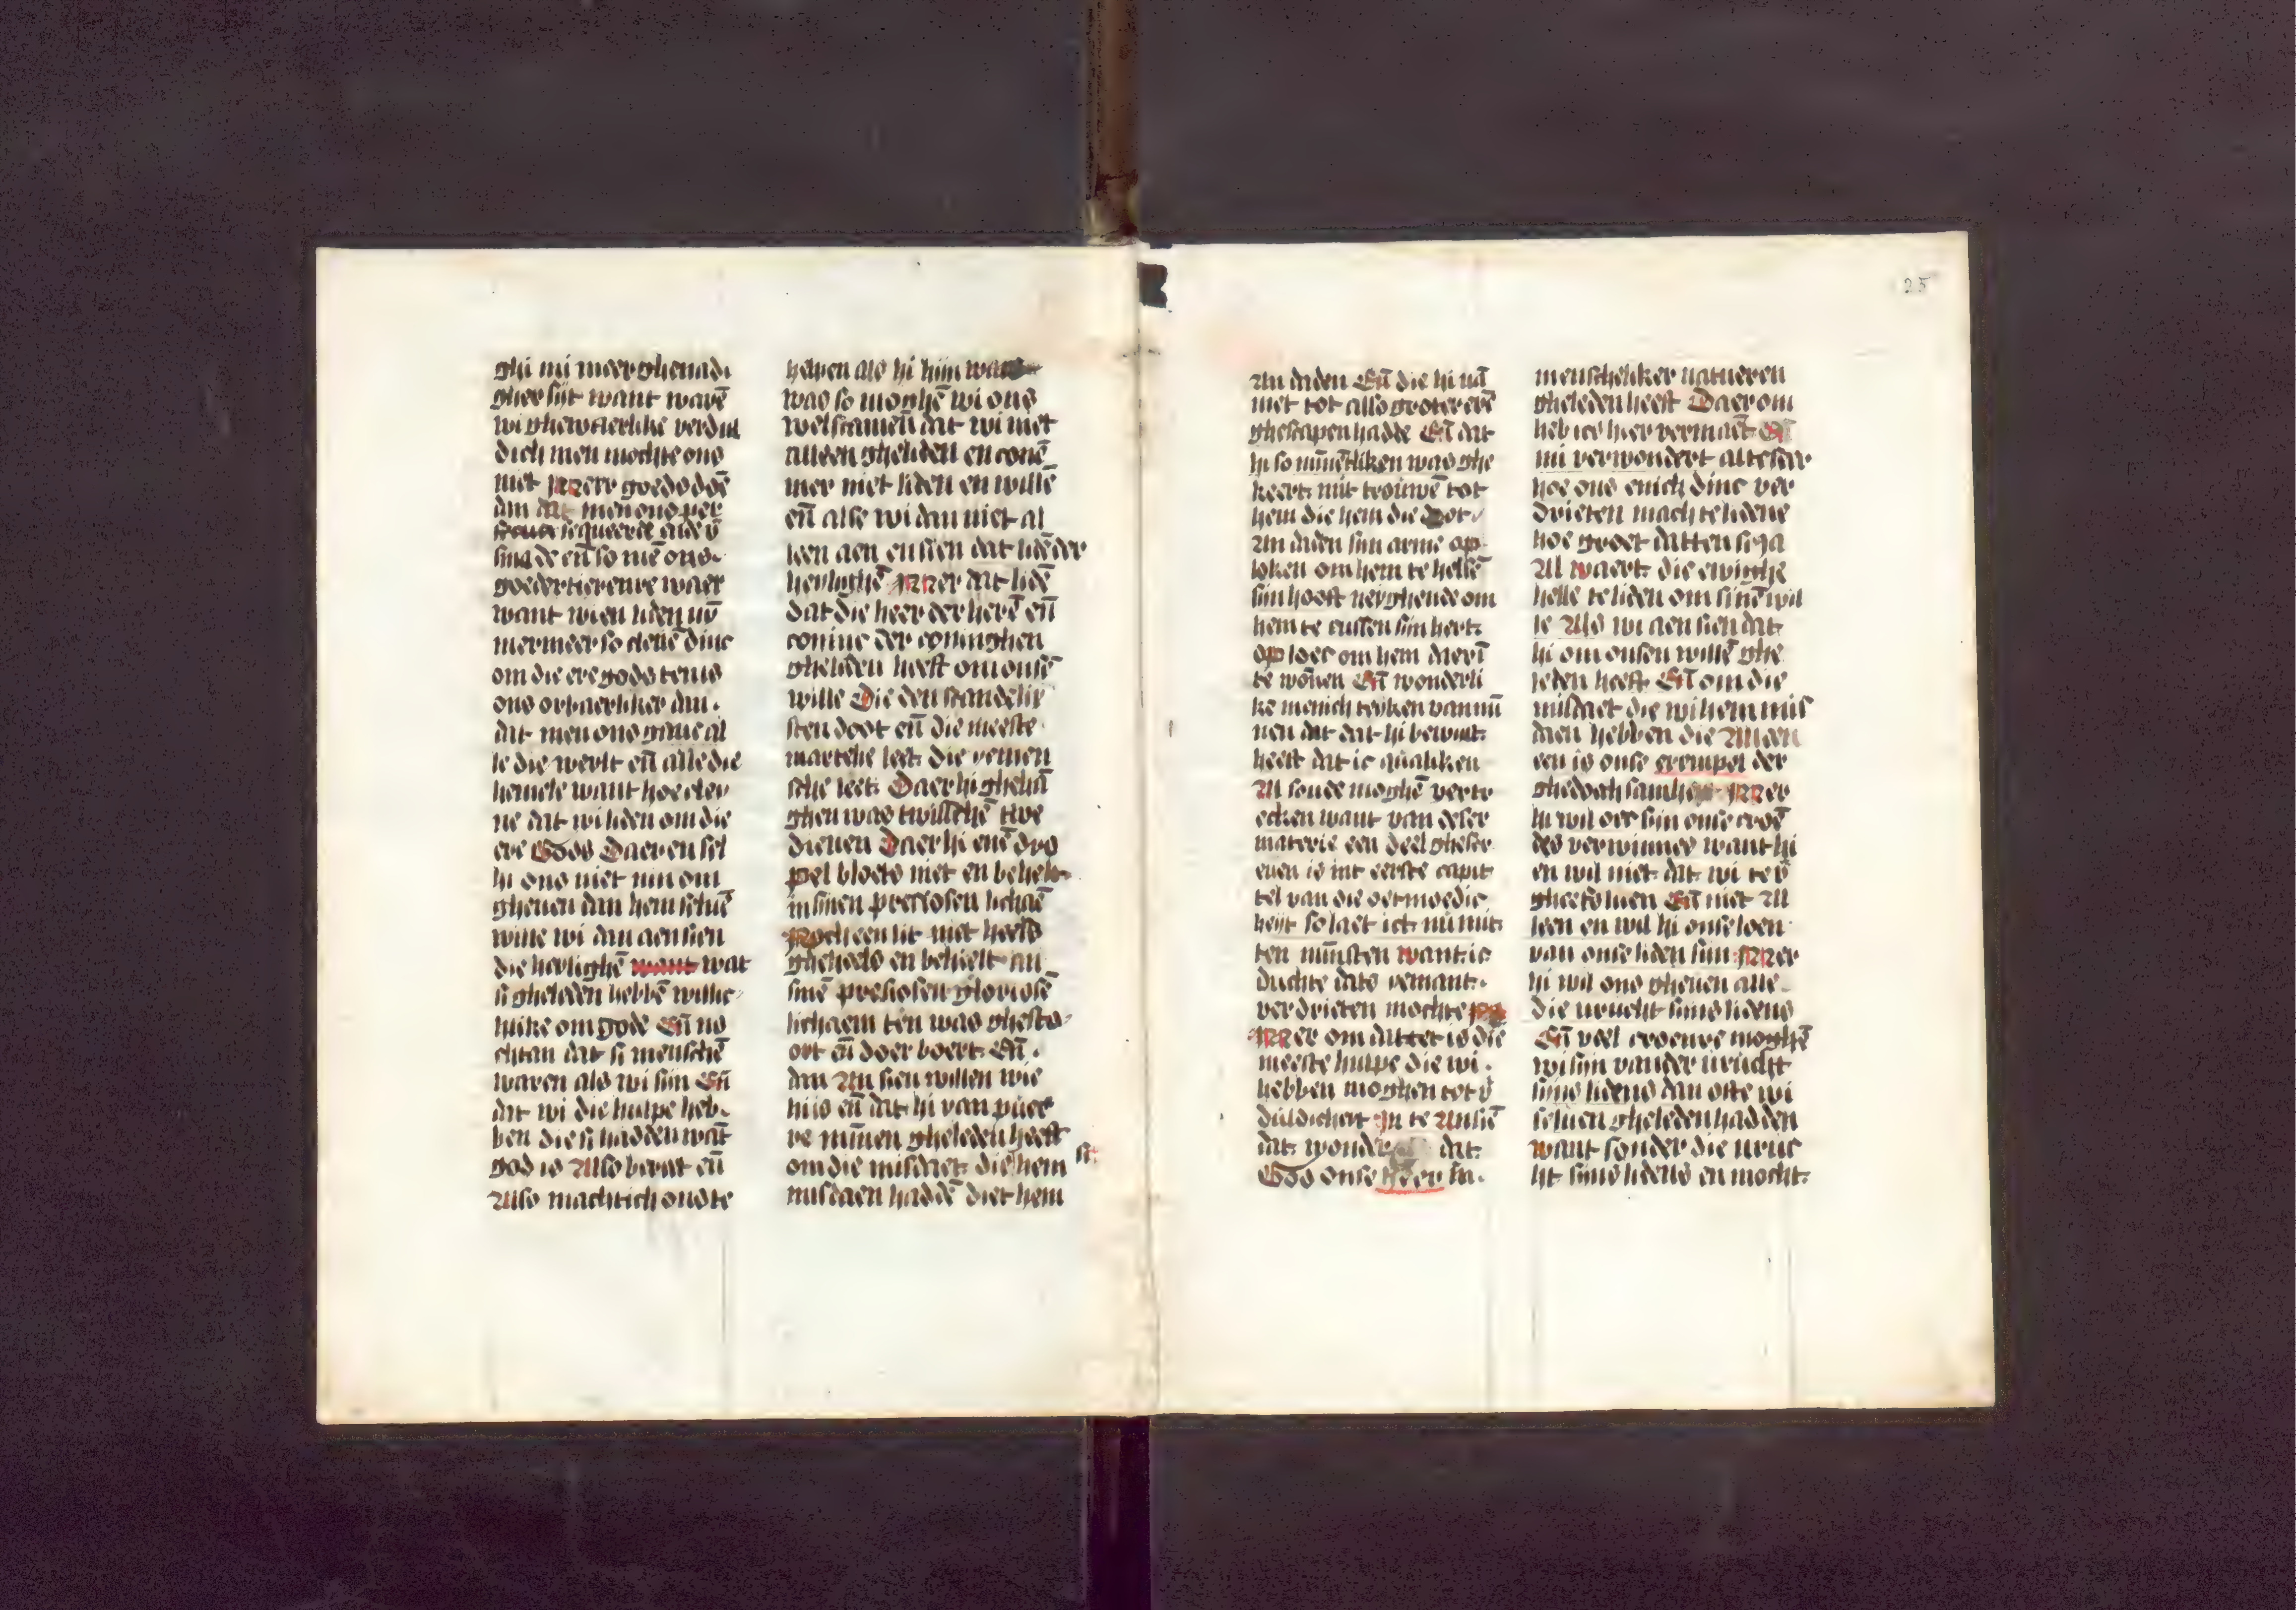 ghi mi meer ghenadi
gher sijt want warē
wi ghewaerlike verdul
dich men mochte ons
niet Meer goeds doē
dan dat men ons per
sequeerde ende v̄
sma de en̄ so mē ons
goedertierenre waer
want wien liden nv̄
mermeer so cleīē dinc
om die ere gods ten is
ons orbaerliker dan
dat men ons gaue al
le die werlt en̄ alle die
hemele want hoe cley
ne dat wi liden om die
ere Gods Daer en sel
hi ons niet min om
gheuen dan hem seluē
wille wi dan aensien
die heylighē want wat
si gheleden hebbē willic
like om gode En̄ no
chtan dat si menschē
waren als wi sijn En̄
dat wi die hulpe heb
ben die si hadden wāt
god is Also bereit en̄
Also machtich ons te
helpen als hi him was
was so moghē wi ons
wel scamen̄ dat wi niet
alleen gheliden en conē
mer niet liden en willē
en̄ alse wi dan niet al
leen aen en sien dat lidē der
heylighē Mer dat lidē
dat die heer der herē en̄
coninc der coninghen
gheliden heeft om onsē
wille Die den scandelix
sten doot en̄ die meeste
martelie leet die yemen
sche leet Daer hi ghehā
ghen was twisschē twe
dieuen Daer hi enē dro
pel bloets niet en behelt
in sinen preciosen lichaē
Noch een lit niet heels
gheheels en behielt an
sinē presiosen gloriosē
lichaem ten was ghesto
ort en̄ doer boert En̄
dan An sien willen wie
hi is en̄ dat hi van puer
re minnen gheleden heeft
om die misdaet die hem st
misdaen haddē diet hem
An daden En̄ die hi nā
niet tot also groter erē
ghescapen hadde En̄ dat
hi so minnētliken was ghe
keert mit trouwē tot
hem die hem die doot
An daden sijn arme op
loken om hem te helsē
sijn hooft neyghende om
hem te cussen sijn hert
op loec om hem daer ī
te wōnen En̄ wonderli
ke menich teyken van mī
nen dat dat hi bewijst
heeft dat ic qualiken
Al soude moghē verte
ecken want van deser
materie een deel ghescr
euen is int eerste capit
tel van die oetmoedic
heyt so laet ict nu mit
ten minsten want ic
duchte dats yemant
verdrieten mochte
Mer om dattet is die
meeste hulpe die wi
hebben moghen tot v̄
duldicheit In te Ansiē
dat wonder dat
God onse heer in
menscheliker natueren
gheleden heeft Daer om
heb ict hier vermaēt
mi verwondert alte seer
hoe ons enich dinc ver
drieten mach te lidene
hoe groet datten si ja
Al waert die ewighe
helle te liden om sinē wil
le Als wi aen sien dat
hi om onsen willē ghe
leden heeft En̄ om die
misdaet die wi hem mis
daen hebben die Alleen
een is onse exempel der
ghedoechsamhe Mer
hi wil oec sijn onse croē
des verwinnes want hi
en wil niet dat wi ver
gheefs liden En̄ niet Al
leen en wil hi onse loen
van onse liden sijn Mer
hi wil ons gheuen alle
die vrucht sijns lidens
En̄ veel croenre moghē
wi sijn vander vrucht
sijns lidens dan oste wi
seluen gheleden hadden
want sonder die vruc
ht sijns lidens en mocht
25